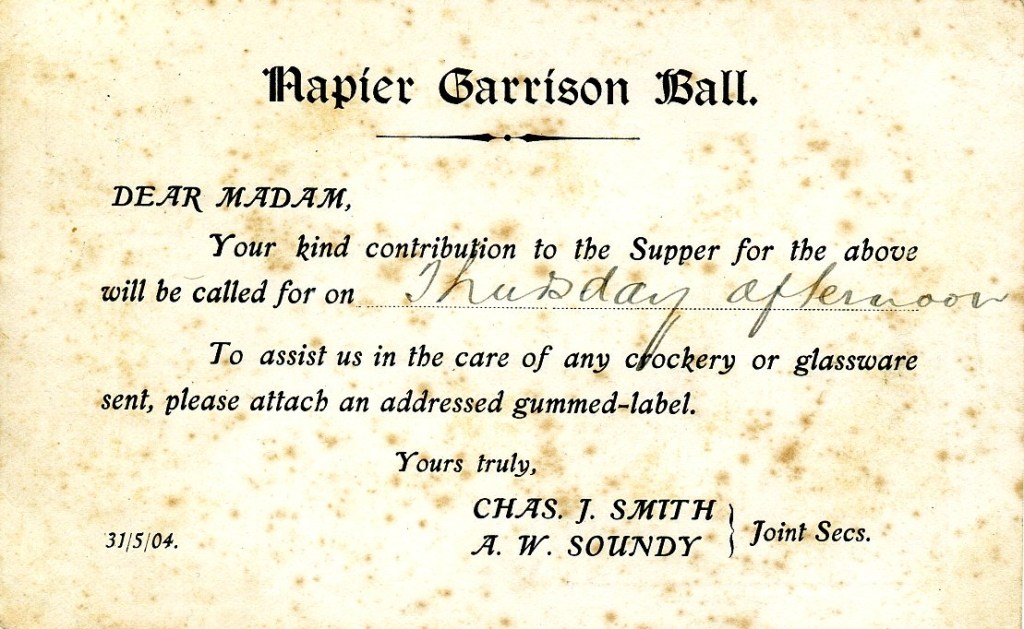 Napier Garrison Ball.
DEAR MADAM,
Your kind contribution to the Supper for the above
will be called for on Thursday afternoon
To assist us in the care of any crockery or glassware
sent, please attach an addressed gummed-label.
Yours truly,
CHAS. J. SMITH
A. W. SOUNDY } Joint Secs.
31/5/04.